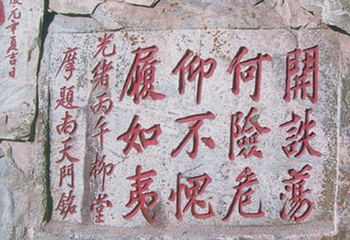 開詄蕩
何險危
仰不愧
履如夷
光緒丙午柳堂
摩題南天門銘